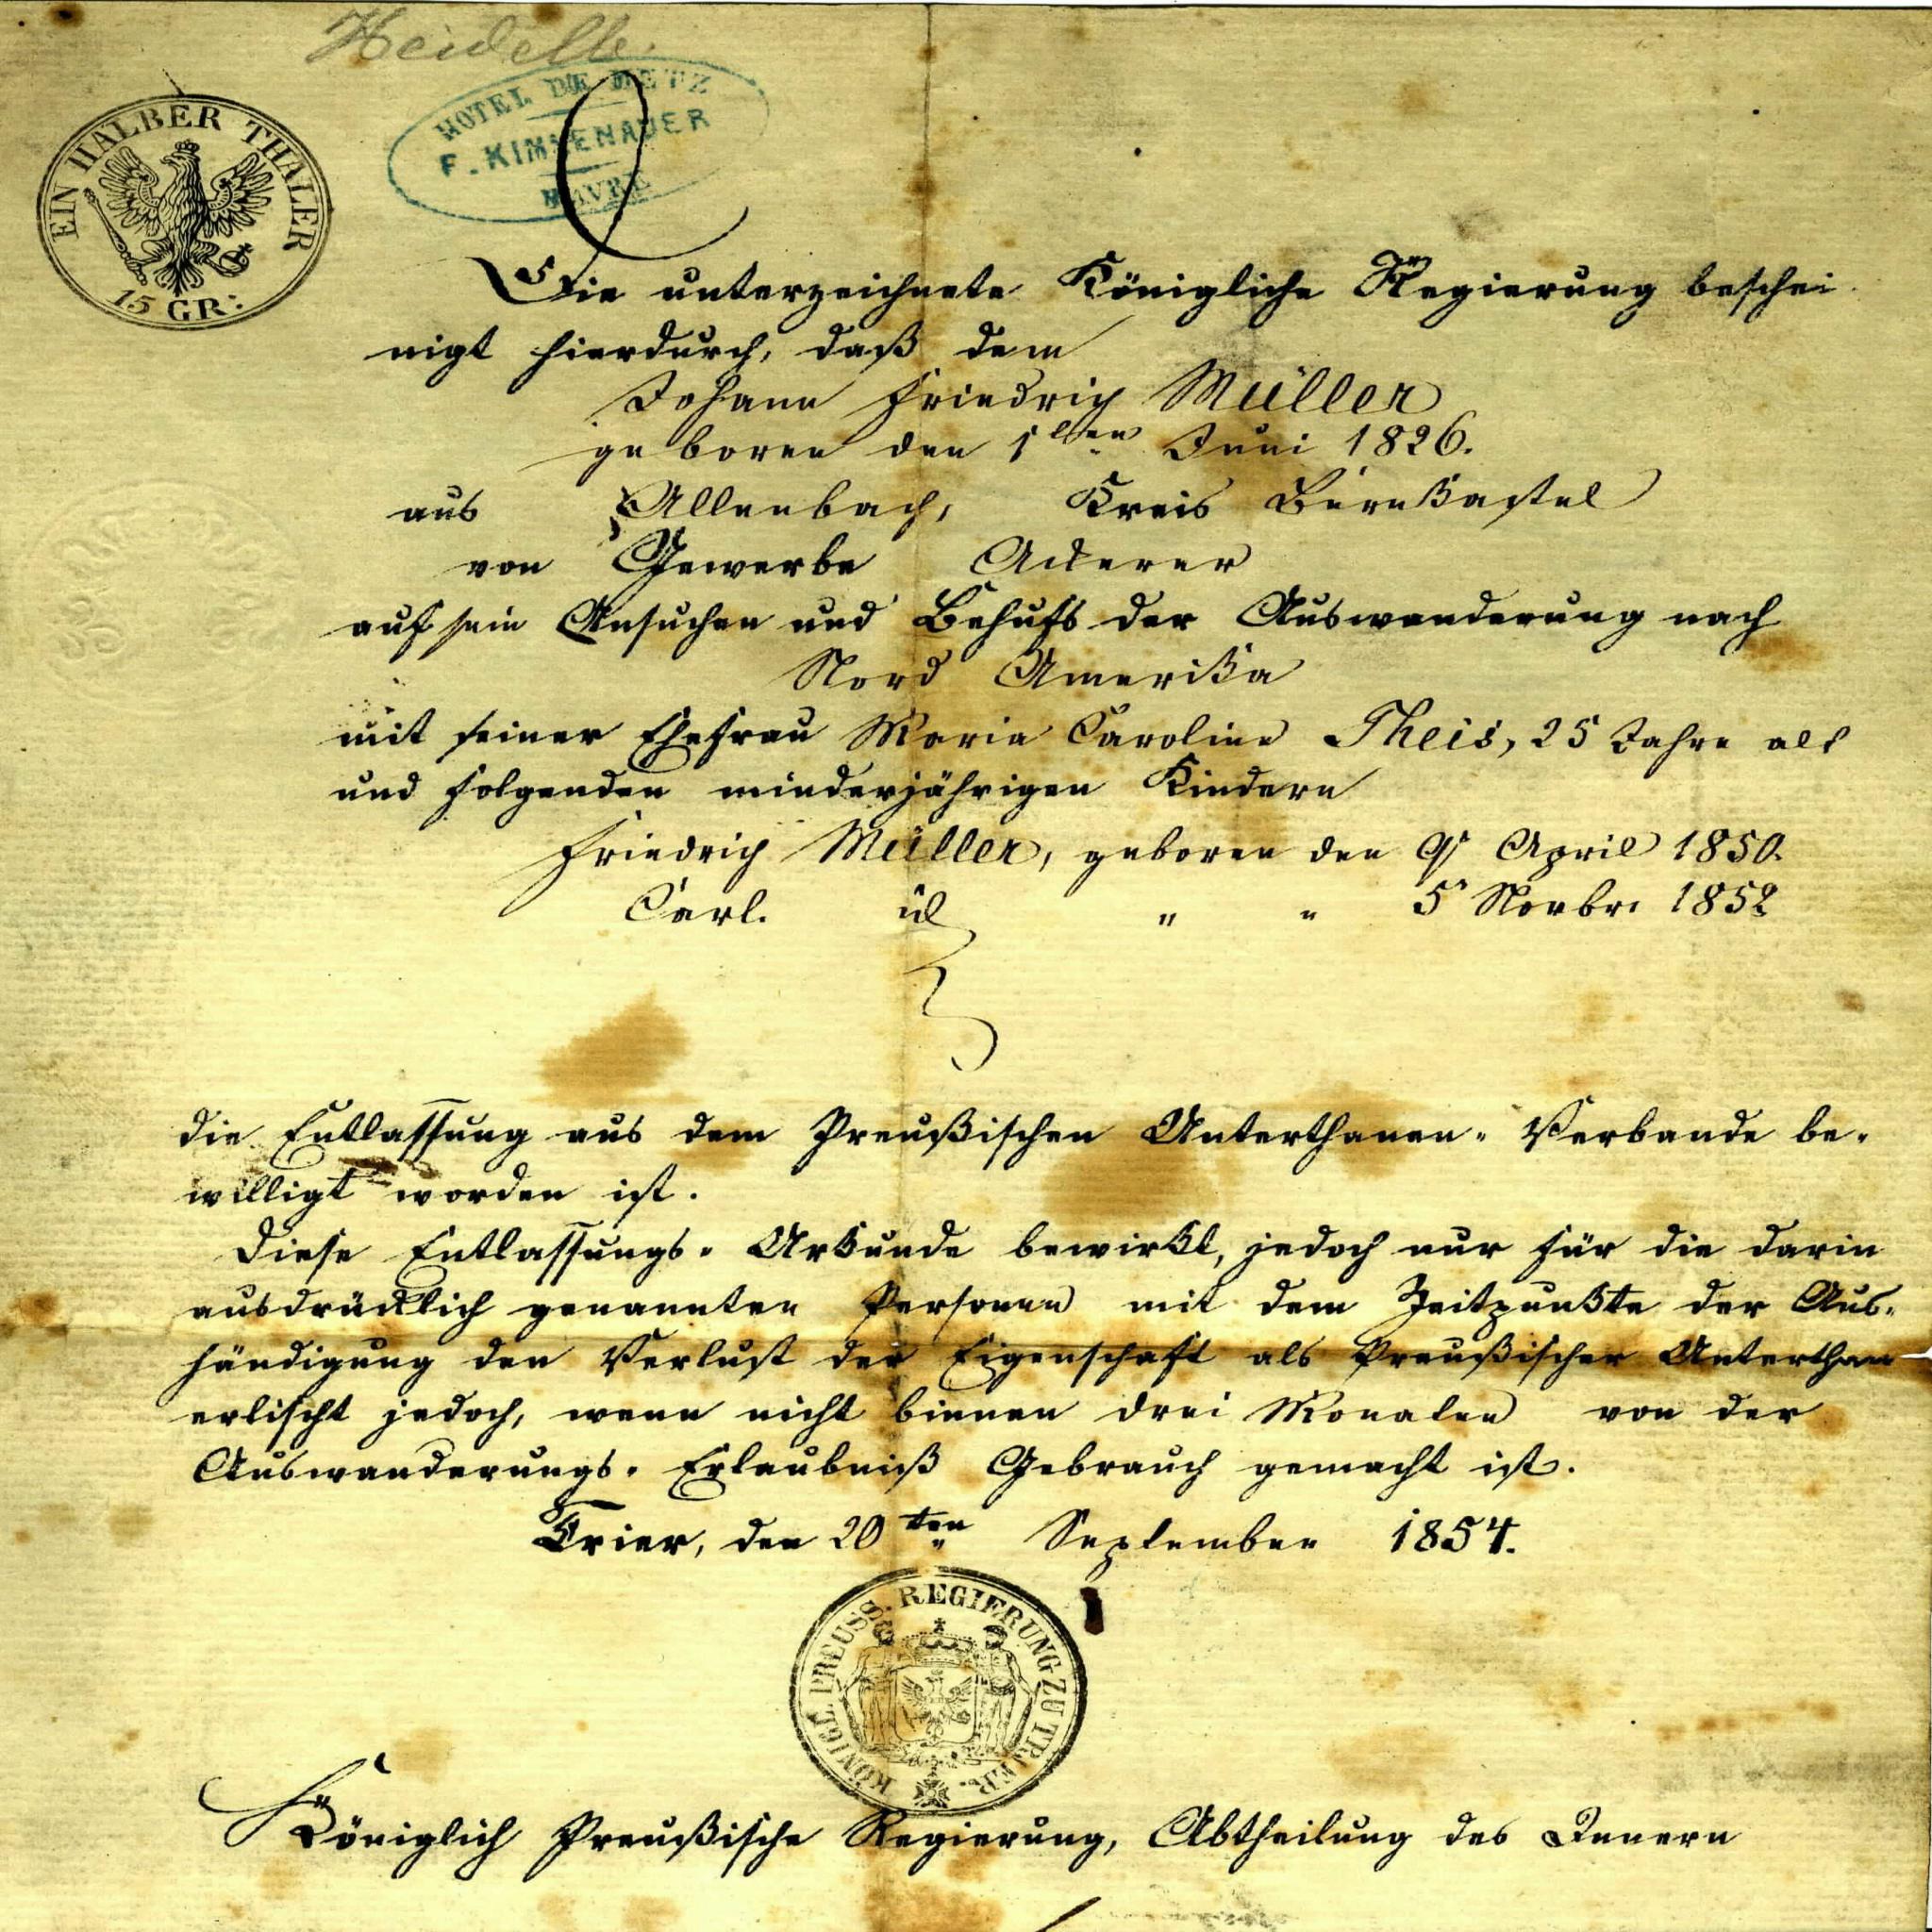 Heidelle.
EIN HALBER THALER
15 GR:
HOTEL DE METZ
F. KIMMENAUER
HAVRE
Die unterzeichnete Königliche Regierung beschei-
nigt hierdurch, daß dem
Johann Friedrich Müller
geboren den 1ten Juni 1826.
aus Allenbach, Kreis Bernkastel
von Gewerbe Ackerer
auf sein Ansuchen und Behufs der Auswanderung nach
Nord Amerika
mit seiner Ehefrau Maria Caroline Theis, 25 Jahre alt
und folgenden minderjährigen Kindern
Friedrich Müller, geboren den 9 April 1850.
Carl. id " " 5 Novbr. 1852
die Entlassung aus dem Preußischen Unterthanen-Verbande be-
willigt worden ist.
Diese Entlassungs-Urkunde bewirkt, jedoch nur für die darin
ausdrücklich genannten Personen mit dem Zeitpunkte der Aus-
händigung den Verlust der Eigenschaft als Preußischer Unterthan
erlischt jedoch, wenn nicht binnen drei Monaten von der
Auswanderungs-Erlaubniß Gebrauch gemacht ist.
Trier, den 20ten September 1854.
KÖNIGL. PREUSS. REGIERUNG ZU TRIER.
Königlich Preußische Regierung, Abtheilung des Innern